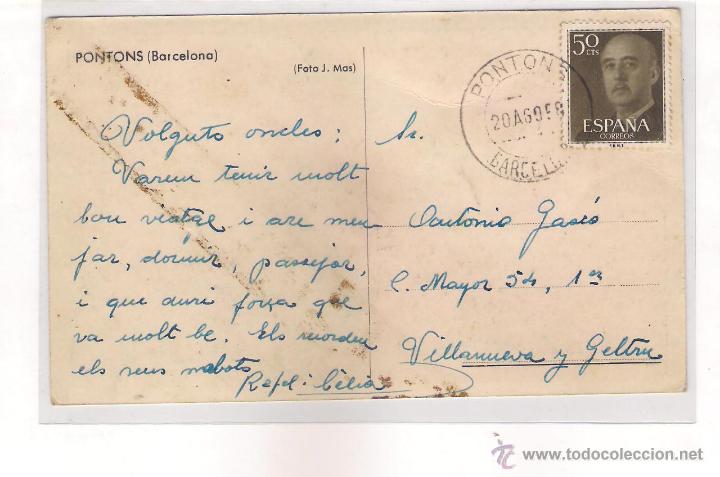 PONTONS (Barcelona)
(Foto J. Mas)
Volguts oncles:
Varem tenir molt
bon viatge i are men
jar, dormir, passejar,
i que duri força que
va molt be. Els recorden
els seus nabots
Rafel i Cèlia
Sr.
Antonio Gasó
C. Mayor 54, 1er
Villanueva y Geltru
PONTONS
20 AGO 58
BARCELONA
50 CTS
ESPAÑA
CORREOS
www.todocoleccion.net